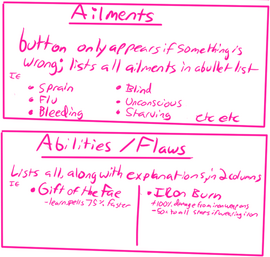 Ailments
button only appears if something is
wrong; lists all ailments in a bullet list
IE
• Sprain • Blind
• Flu • Unconscious
• Bleeding • Starving etc etc
Abilities/Flaws
Lists all, along with explanations, in 2 columns
IE
• Gift of the Fae • Iron Burn
-learn spells 75% faster +100% damage from iron weapons
-50% to all stats if wearing iron